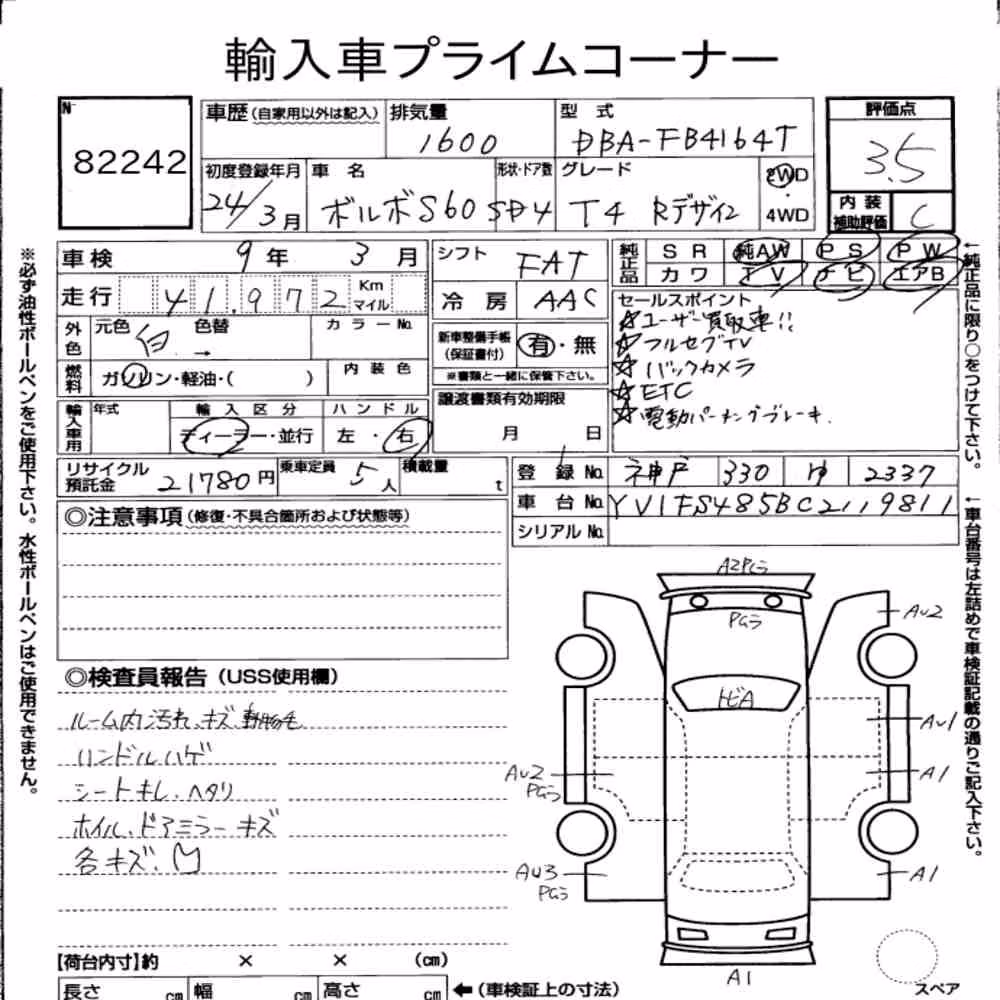 輸入車プライムコーナー
№ 82242
車歴 (自家用以外は記入)
排気量 1600
型式 DBA-FB4164T
評価点 3.5
初度登録年月 24/3月
車名 ボルボS60
形状・ドア数 SD4
グレード T4 Rデザイン
2WD・4WD
内装補助評価 C
車検 9年 3月
シフト FAT
純正品 SR 純AW PS PW
カワ TV ナビ エアB
走行 41,972 Km マイル
冷房 AAC
外色 元色 白 色替 → カラーNo.
新車整備手帳(保証書付) 有・無
※書類と一緒に保管下さい。
セールスポイント
☆ユーザー買取車!!
☆フルセグTV
☆バックカメラ
☆ETC
☆電動パーキングブレーキ.
燃料 ガソリン・軽油・( ) 内装色
譲渡書類有効期限 月 日
輸入車用 年式 輸入区分 ハンドル
ディーラー・並行 左・右
リサイクル預託金 21780円
乗車定員 5人
積載量 t
登録No. 神戸 330 ゆ 2337
車台No. YV1FS485BC2119811
シリアルNo.
※必ず油性ボールペンをご使用下さい。水性ボールペンはご使用できません。
←純正品に限り○をつけて下さい。
←車台番号は左詰めで車検証記載の通りご記入下さい。
◎注意事項 (修復・不具合箇所および状態等)
◎検査員報告 (USS使用欄)
ルーム内汚れ、キズ、動物毛
ハンドルハゲ
シートキレ・ヘタリ
ホイル、ドアミラーキズ
各キズ、凹
A2PGラ
PGラ
AU2
トビA
AU1
AU2
PGラ
A1
AU3
PGラ
A1
A1
スペア
【荷台内寸】約 × × (cm)
長さ cm 幅 cm 高さ cm ←(車検証上の寸法)